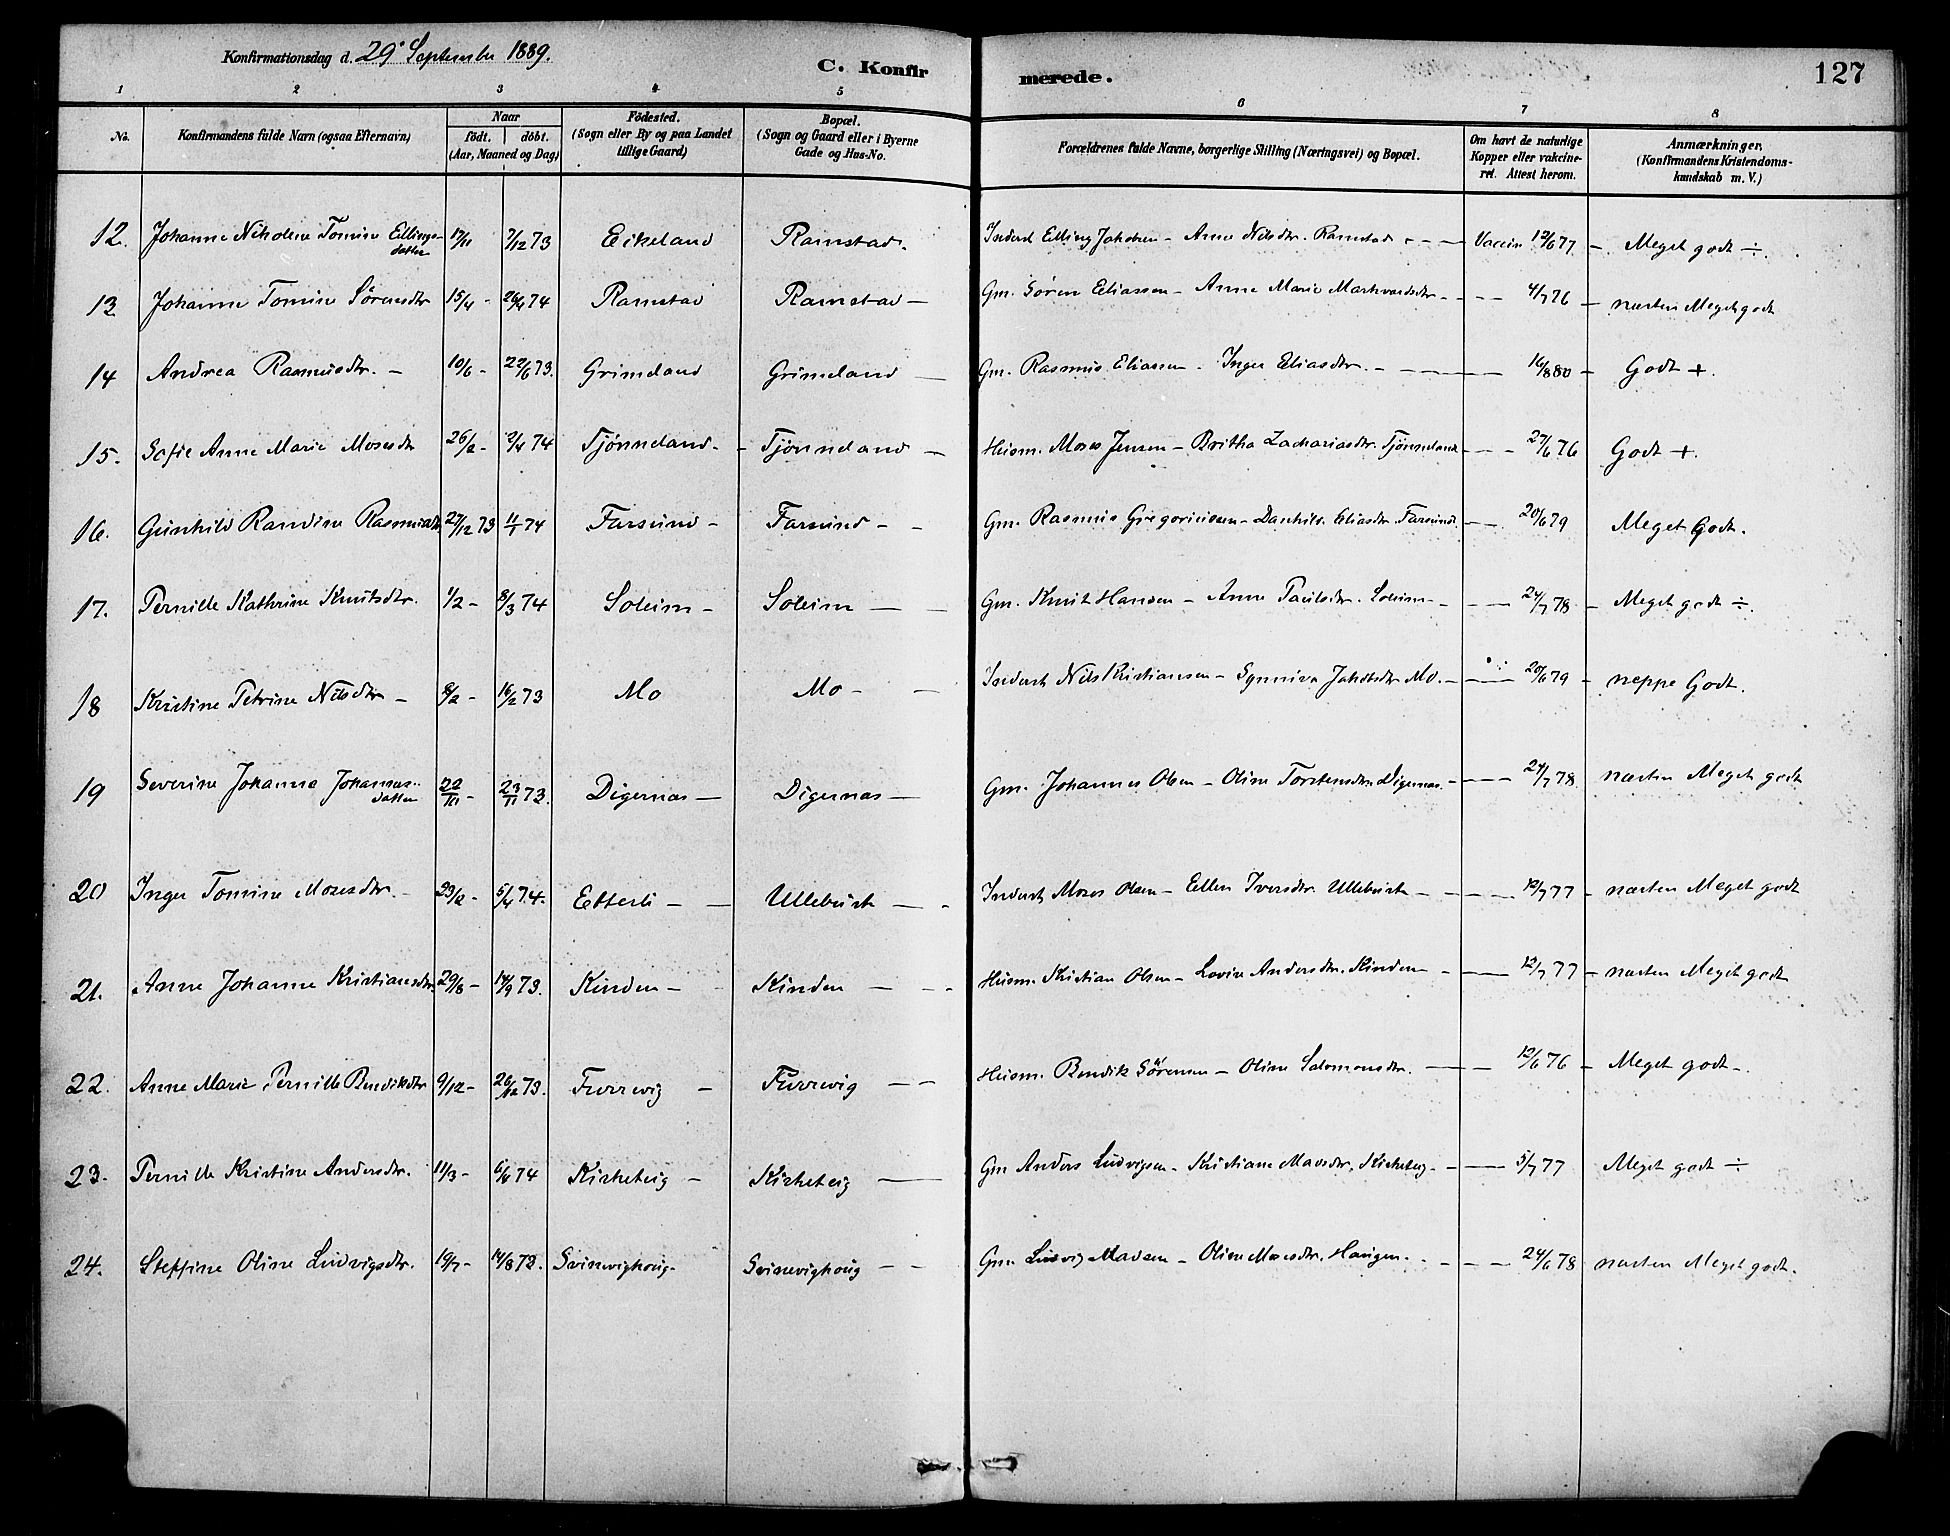 Konfirmationsdag d. 29' September 1889. C. Konfirmerede. 127
1 2 3 4 5 6 7 8
No. Konfirmandens fulde Navn (ogsaa Efternavn) Naar födt. döbt. (Aar, Maaned og Dag) Födested. (Sogn eller By og paa Landet tillige Gaard) Bopæl. (Sogn og Gaard eller i Byerne Gade og Hus-No. Forældrenes fulde Navne, borgerlige Stilling (Næringsvei) og Bopæl. Om havt de naturlige Kopper eller vakcineret. Attest herom. Anmærkninger. (Konfirmandens Kristendomskundskab m. V.)
12. Johanne Nikoline Tomine Ellingsdatter 17/11 7/12 73 Eikeland Ramstad. Inderst Elling Jakobsen - Anne Nilsdtr. Ramstad - - - Vaccin 12/6 77 - Meget godt ÷.
13 Johanne Tomine Sörensdtr 15/4 - 26/4 74 Ramstad Ramstad - Gm. Sören Eliassen - Anne Marie Markvardsdtr - - - 4/7 76 - næsten Meget godt
14 Andrea Rasmusdtr. - 10/6 - 22/6 73. Grimeland Grimeland - Gm. Rasmus Eliassen - Inger Eliasdtr. - - - 16/8 80 - Godt +.
15. Sofie Anne Marie Mosesdtr 26/2 - 2/4 74 Tjönneland - Tjönneland - Husm. Moses Jensen - Britha Zachariasdtr. Tjönneland - - - 27/6 76 Godt +.
16. Gunhild Randine Rasmusdtr 27/12 73 11/1 74 Farsund - Farsund - - Gm. Rasmus Gregoriussen - Danhild Eliasdtr. Farsund. - - 20/6 79 Meget Godt.
17. Pernille Kathrine Knutsdtr. 1/2 - 8/3 74 Soleim - Soleim - - Gm. Knut Hansen - Anne Paulsdtr. Soleim - - - 24/7 78 - Meget godt ÷.
18 Kristine Petrine Nilsdtr - 8/2 - 16/2 73 Mo Mo - - Inderst Nils Kristiansen - Synniva Jakobsdtr Mo. - - 20/6 79 - neppe Godt.
19 Severine Johanna Johannesdatter 22/11 - 23/11 73. Digernæs - Digernæs - Gm. Johannes Olsen - Oline Torstensdtr. Digernæs. - - 24/7 78 næsten Meget godt
20 Inger Tomine Mosesdtr. - 23/12 - 5/4 74. Etterli - - Ullebust - - Inderst Moses Olsen - Ellen Iversdtr. Ullebust - - - 12/7 77 - næsten Meget godt
21. Anne Johanne Kristiansdtr. 29/8 - 14/9 73. Kinden - Kinden - - - Husm. Kristian Olsen - Lovise Andersdtr. Kinden - - 12/7 77 - næsten Meget godt
22. Anne Marie Pernille Bendiksdtr 9/12 - 26/12 73. Furrevig - Furrevig - - Husm. Bendik Sörensen - Oline Salomonsdtr. - - 12/6 76 - Meget godt -.
23. Pernille Kristine Andersdtr. 11/3 - 6/4 74 Kirketeig - Kirketeig - Gm Anders Ludvigsen - Kristiane Madsdtr, Kirketeig - - 5/7 77 Meget godt ÷
24. Steffine Oline Ludvigsdtr. 19/7 - 14/8 73. Svinevighoug - Svinevighoug - - Gm. Ludvig Madsen - Oline Mosesdtr. Haugen - - - 24/6 78 næsten Meget godt.